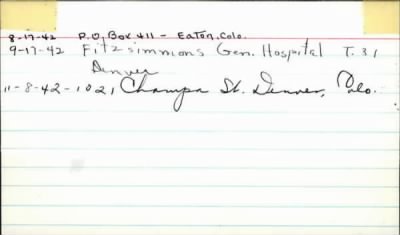 8-17-42 P.O. Box 411 - Eaton, Colo.
9-17-42 Fitzsimmons Gen. Hospital T. 31
Denver
11-8-42-1021 Champa St. Denver, Colo.